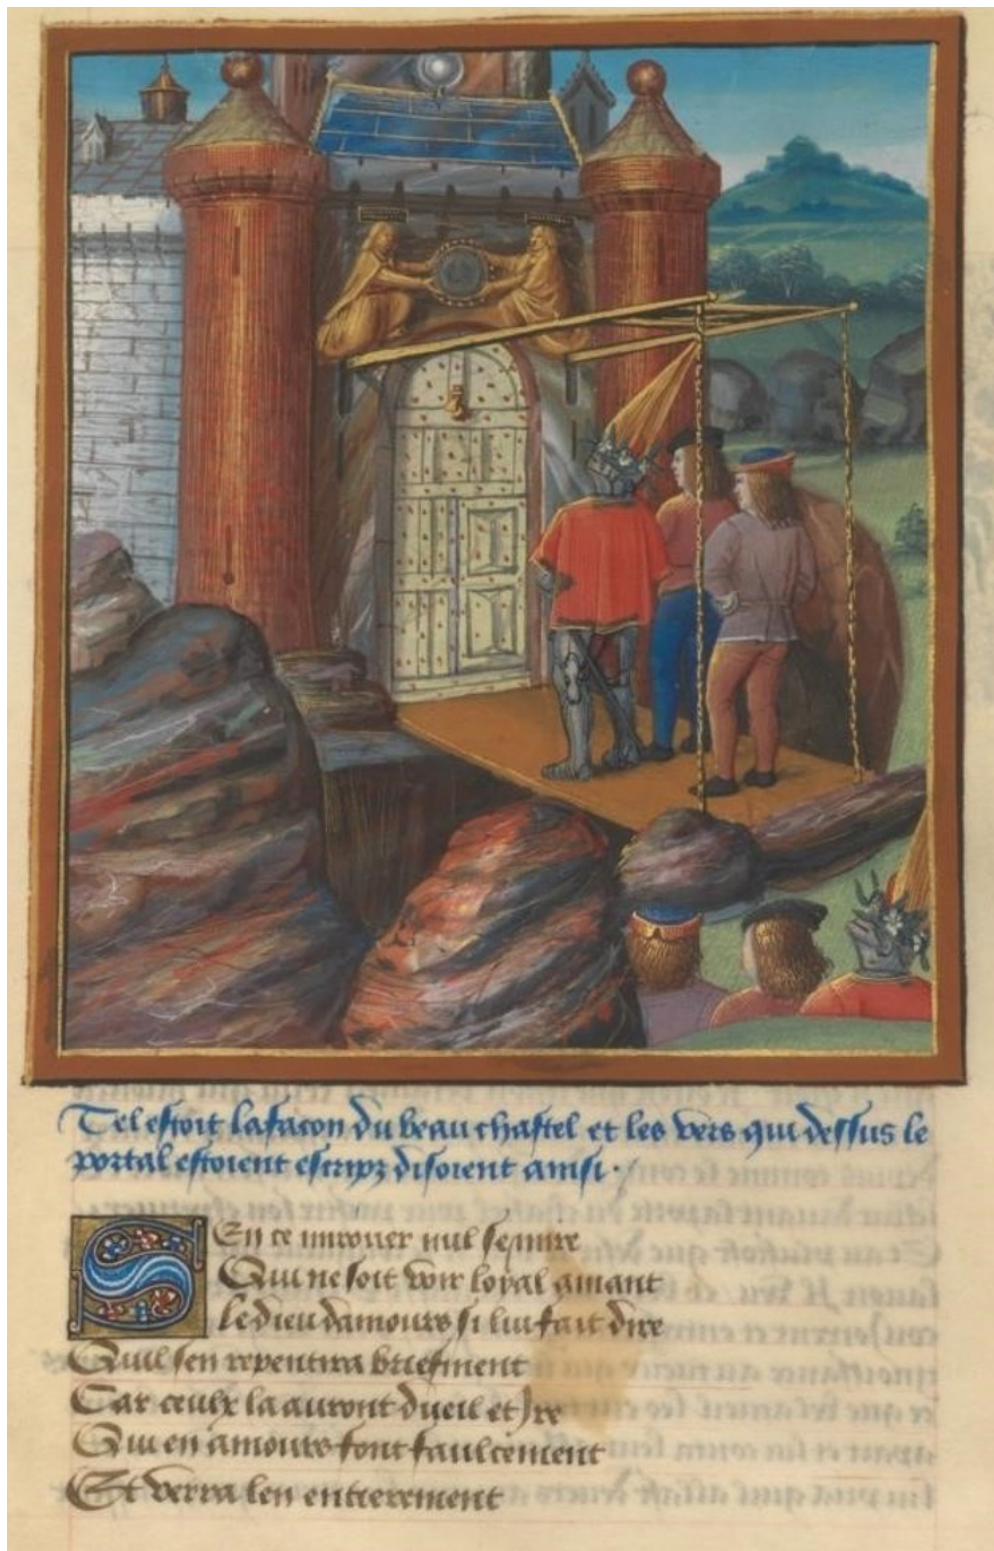 Tel estoit la facon du beau chastel et les vers qui dessus le
portal estoient escripz disoient ainsi.
Sen ce mirouer nul se mire
Qui ne soit voir loyal amant
Le dieu damours si lui fait dire
Quil sen repentira briefment
Car ceulx la auront dueil et Ire
Qui en amours font faulcement
Et verra len entierement